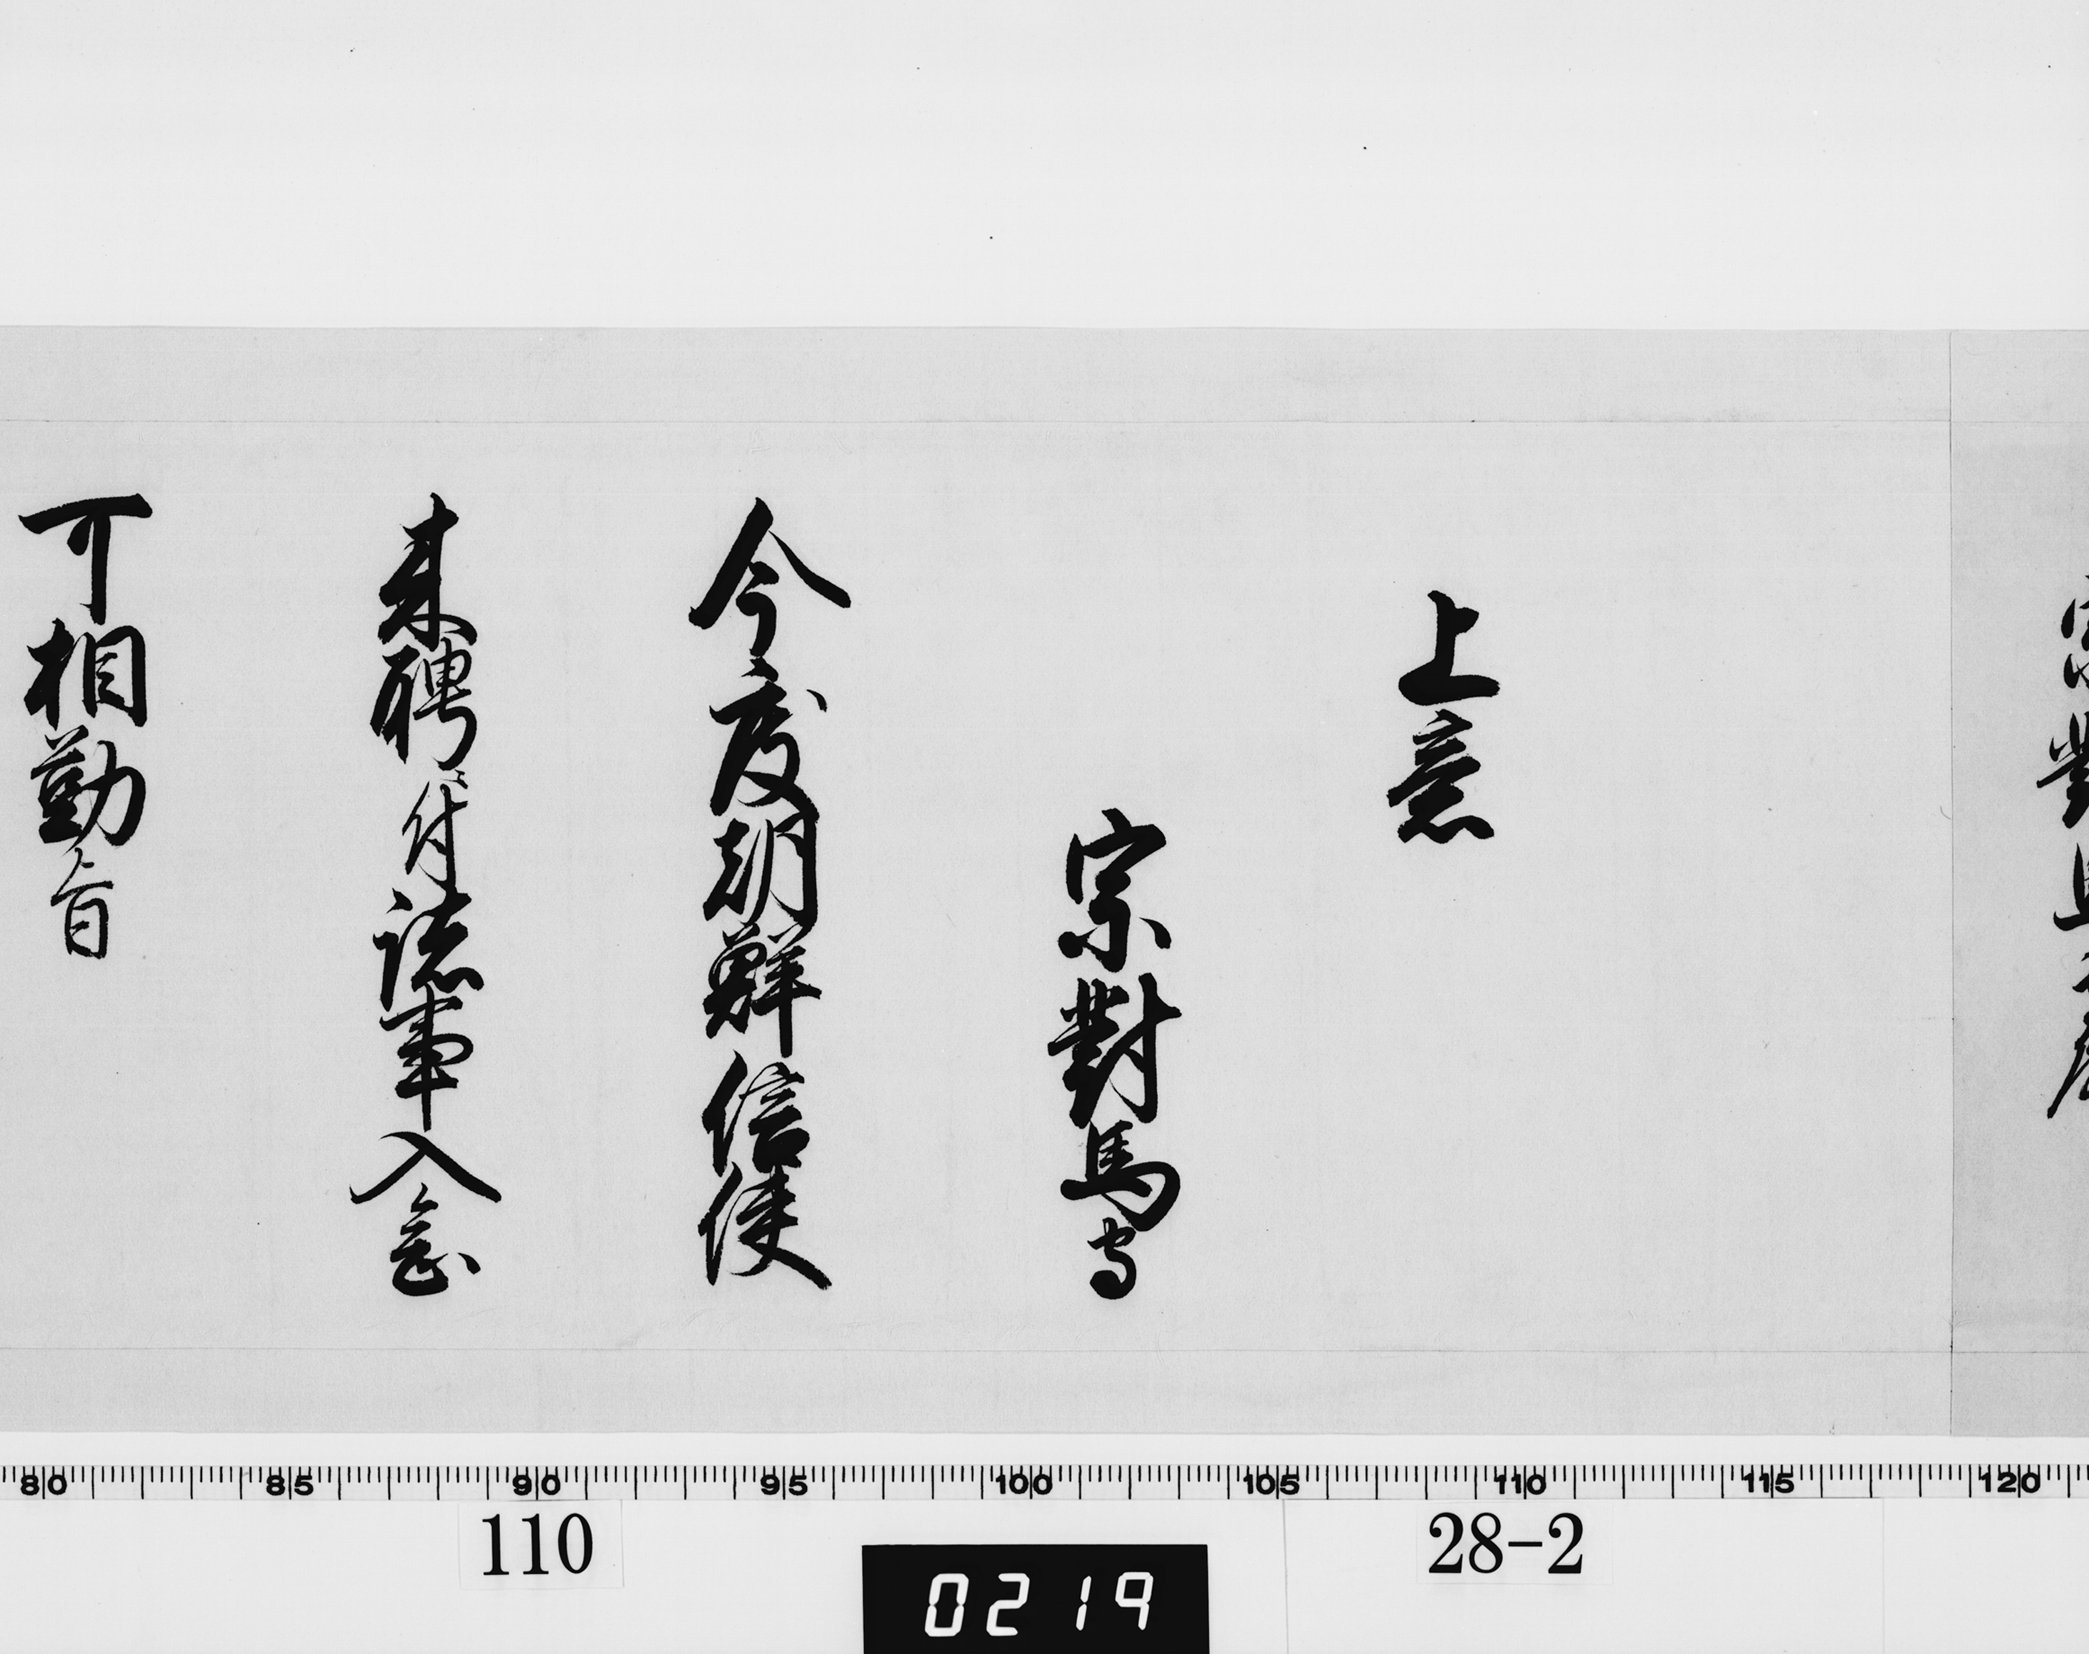 宗對馬守
上意
宗對馬守
今度朝鮮信使
来聘ニ付諸事入念
可相勤旨
80 85 90 95 100 105 110 115 120
110
28-2
0219